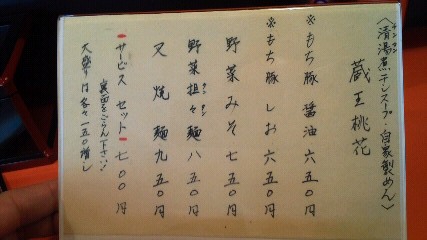 〈清湯煮干シスープ・自家製めん〉
チンタン
蔵王桃花
※もち豚 醤油 六五〇円
※もち豚 しお 六五〇円
野菜みそ 七五〇円
野菜担々麺 八五〇円
タンタン
叉焼麺 九五〇円
サービスセット 七〇〇円
裏面をごらん下さい!
大盛りは各々一五〇増し